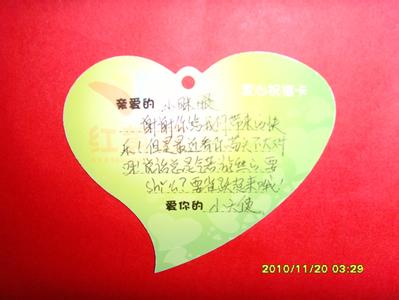 爱心祝福卡
亲爱的 小眯眼
红
谢谢你给我们带来的快
乐！但是最近看你苗头不大对
说话总是气若游丝 要
shi么？要雀跃起来哦！
爱你的 小天使
2010/11/20 03:29